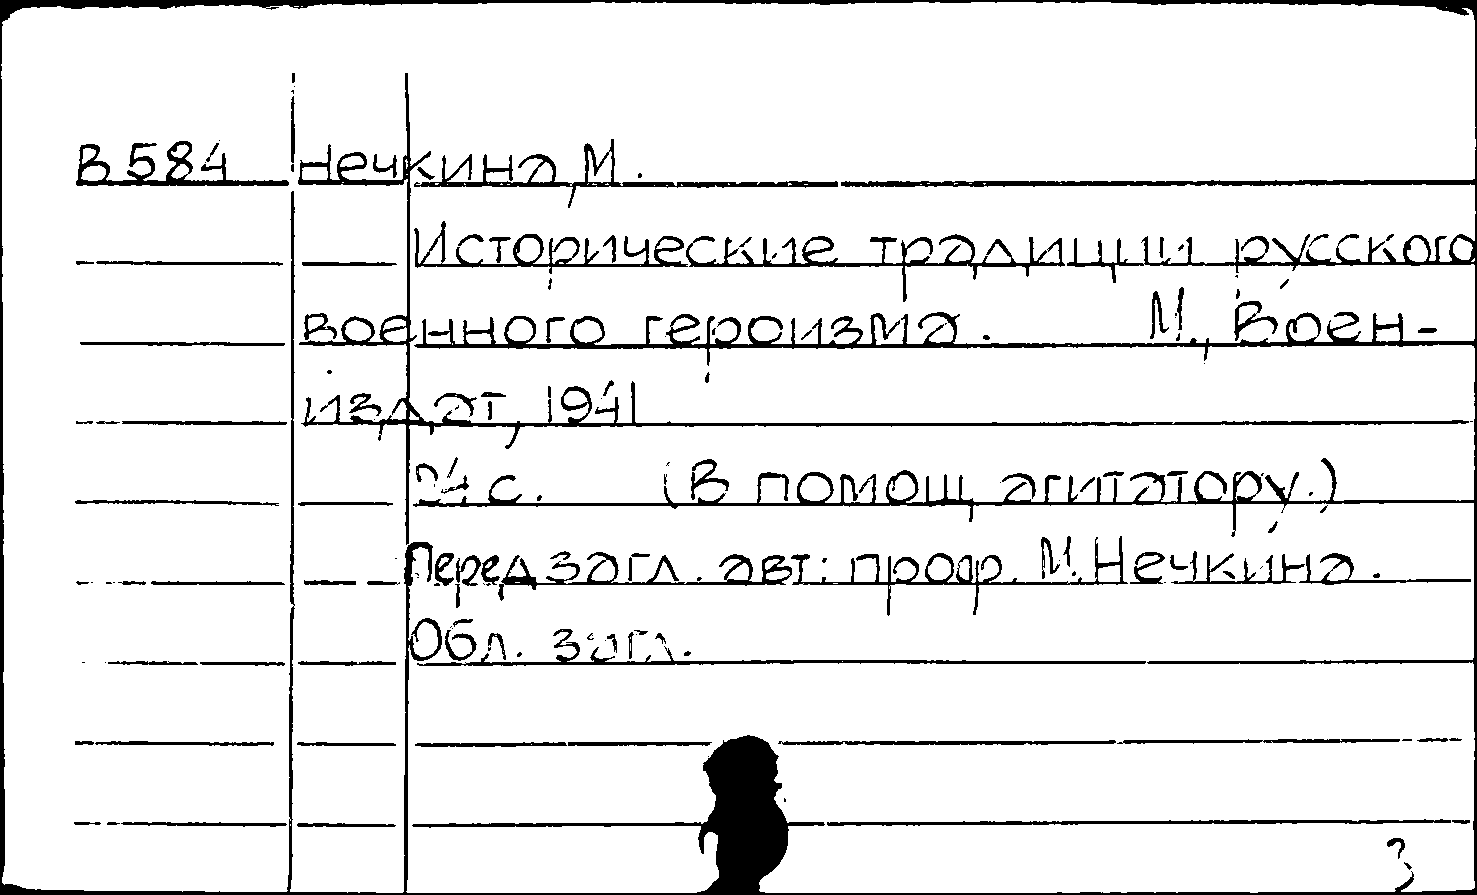 В584 Нечкина, М.
Исторические традиции русского
военного героизма. М., Воен-
издат, 1941
24 с. (В помощ агитатору.)
Перед загл. авт: проф. М. Нечкина.
Обл. загл.
3